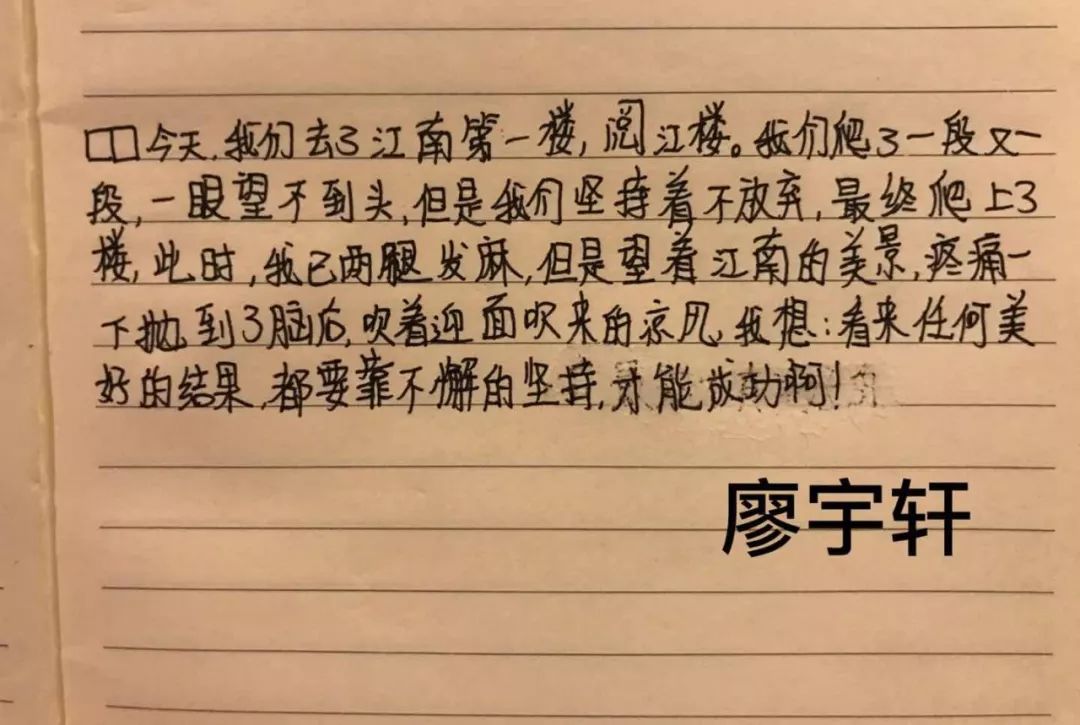 今天,我们去了江南第一楼,阅江楼。我们爬了一段又一
段,一眼望不到头,但是我们坚持着不放弃,最终爬上了
楼,此时,我已两腿发麻,但是望着江南的美景,疼痛一
下抛到了脑后,吹着迎面吹来的凉风,我想:看来任何美
好的结果,都要靠不懈的坚持,才能成功啊!
廖宇轩